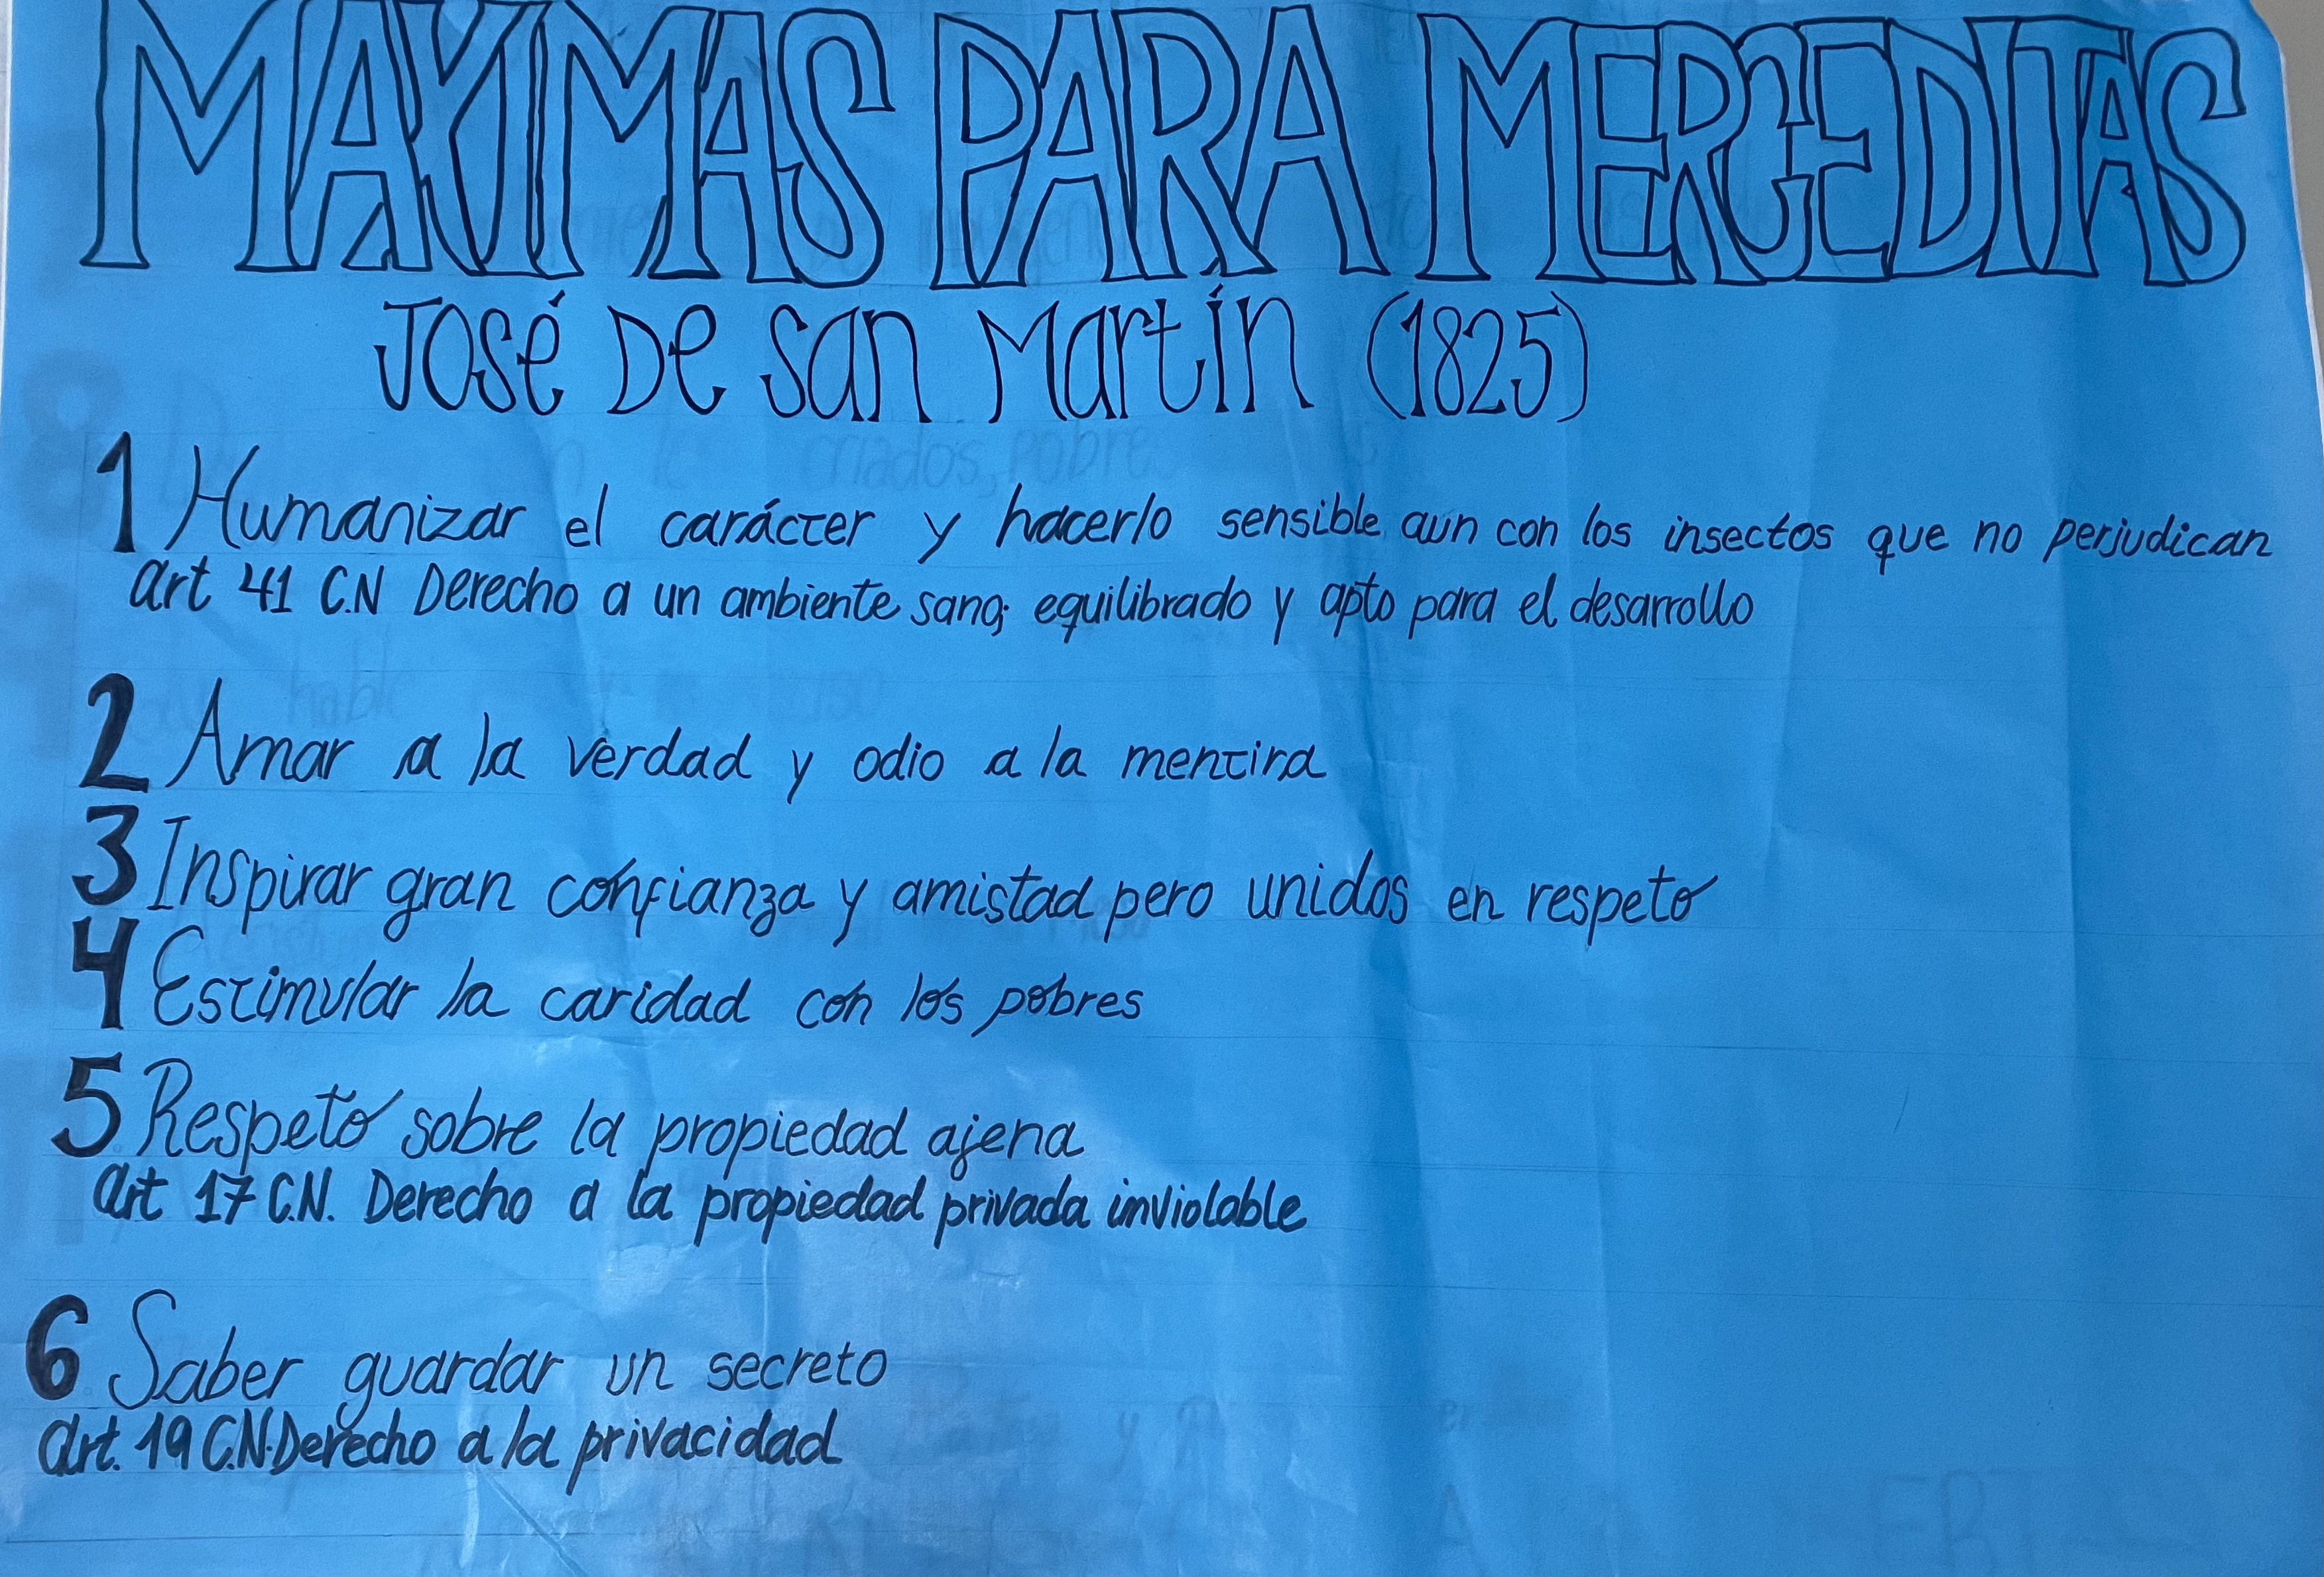 MAXIMAS PARA MERCEDITAS
José De San Martín (1825)
1 Humanizar el carácter y hacerlo sensible aun con los insectos que no perjudican
art 41 C.N Derecho a un ambiente sano, equilibrado y apto para el desarrollo
2 Amar a la verdad y odio a la mentira
3 Inspirar gran confianza y amistad pero unidos en respeto
4 Estimular la caridad con los pobres
5 Respeto sobre la propiedad ajena
art 17 C.N. Derecho a la propiedad privada inviolable
6 Saber guardar un secreto
art. 19 C.N. Derecho a la privacidad